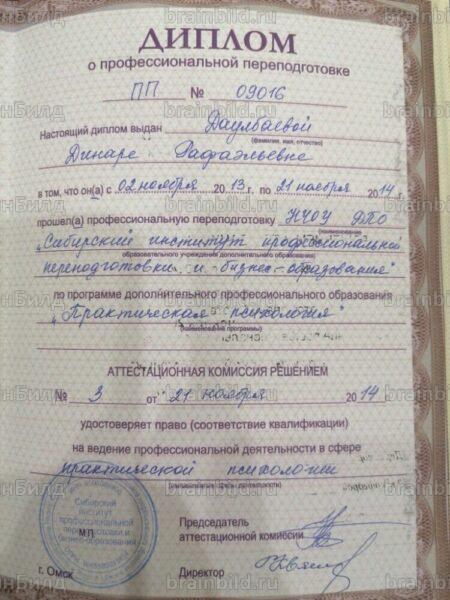 ДИПЛОМ
о профессиональной переподготовке
ПП № 09016
Настоящий диплом выдан Даулбаевой
(фамилия, имя, отчество)
Динаре Рафаэльевне
в том, что он(а) с 02 ноября 2013 г. по 21 ноября 2014 г.
прошел(а) профессиональную переподготовку НЧОУ ДПО
(наименование
"Сибирский институт профессиональной
образовательного учреждения дополнительного образования)
переподготовки и бизнес-образования"
по программе дополнительного профессионального образования
"Практическая психология"
(наименование программы)
АТТЕСТАЦИОННАЯ КОМИССИЯ РЕШЕНИЕМ
№ 3 от 21 ноября 2014 г.
удостоверяет право (соответствие квалификации)
на ведение профессиональной деятельности в сфере
практической психологии
Сибирский
институт
профессиональной
переподготовки и
бизнес-образования
М.П.
Председатель
аттестационной комиссии
г. Омск Директор
brainbild.ru